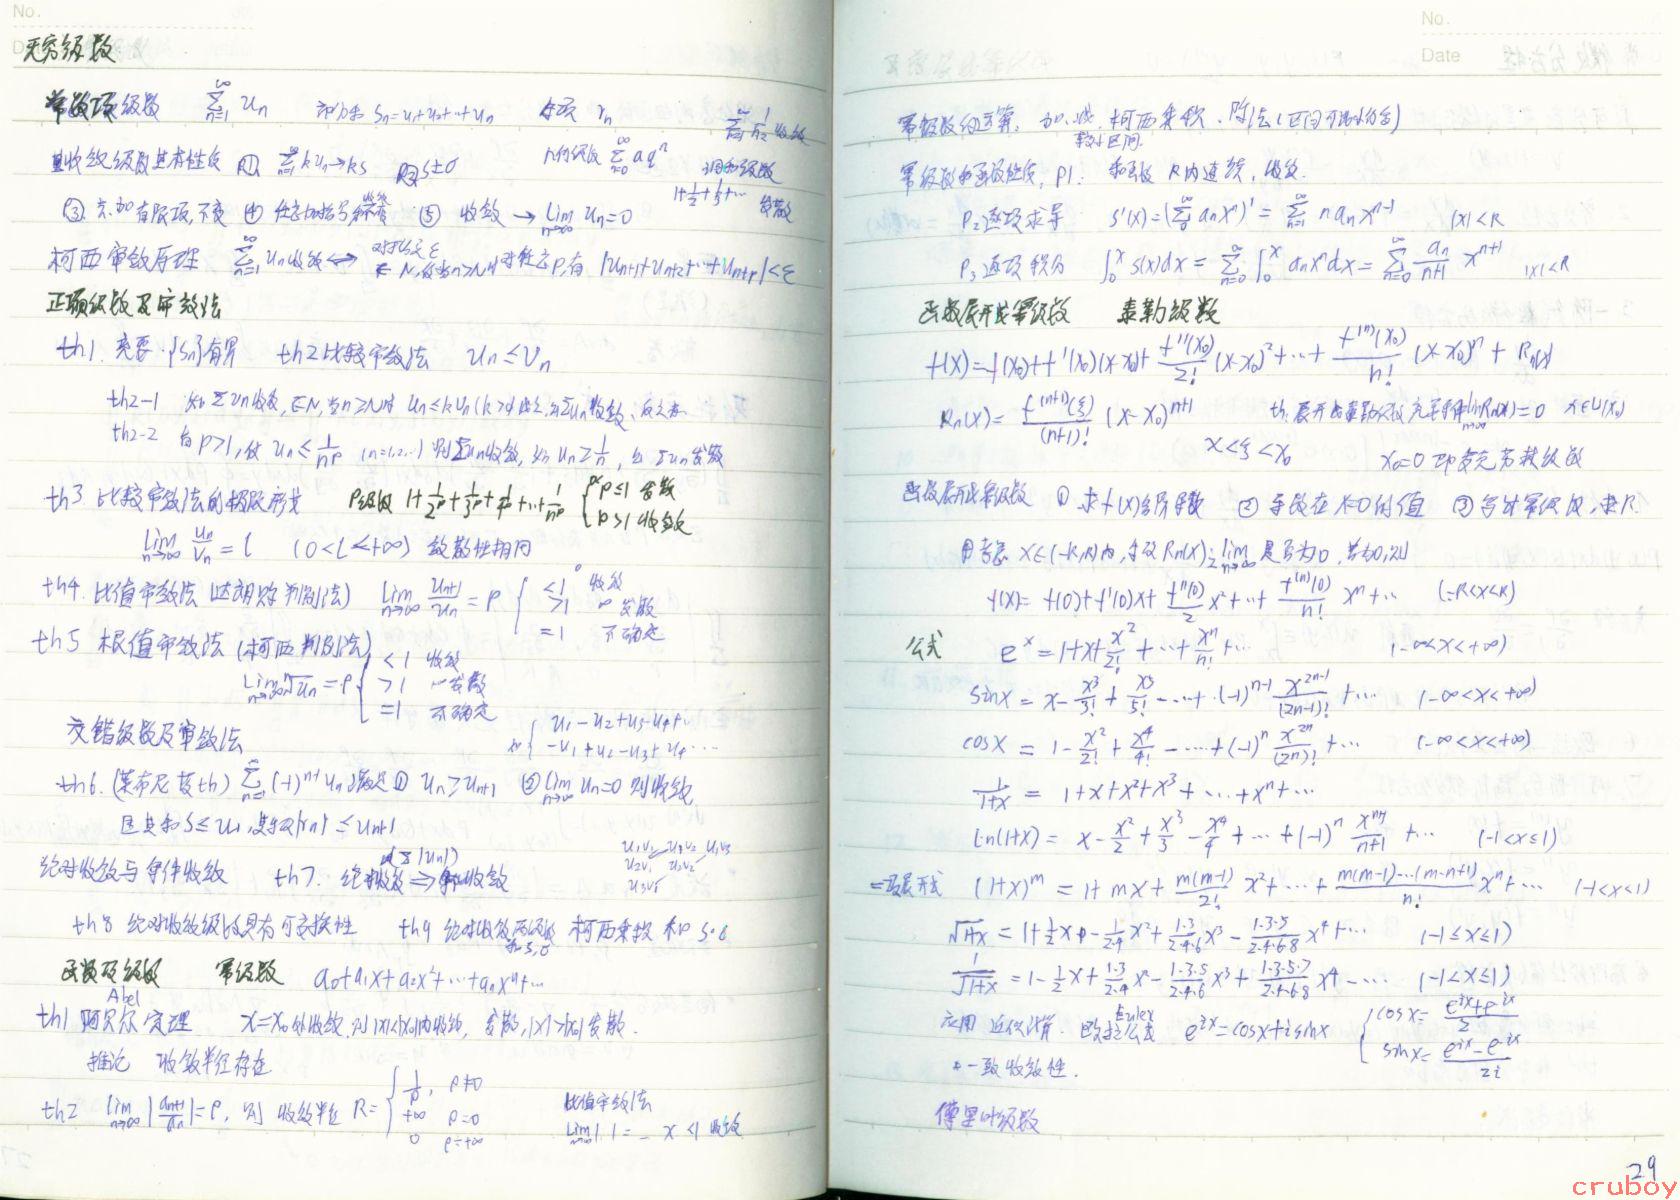 No.
无穷级数
常数项级数 ∑_{n=1}^{∞} u_n 部分和 S_n=u_1+u_2+…+u_n 余项 r_n ∑_{n=1} 1/n² 收敛
收敛级数基本性质 ∑_{n=1}^{∞} k u_n → kS S±σ 几何级数 ∑_{n=0}^{∞} aq^n 调和级数
1+1/2+1/3+… 发散
③ 去.加有限项,不变 ④ 任意加括号 收敛 ⑤ 收敛 → lim_{n→∞} u_n=0
柯西审敛原理 ∑_{n=1}^{∞} u_n收敛 ⟺ 对于任意ε 存N,使当n>N时 对任意P,有 |u_{n+1}+u_{n+2}+…+u_{n+p}|<ε
正项级数及审敛法
th1. 充要·{S_n}有界 th2 比较审敛法 u_n ≤ v_n
th2-1 ∑v_n收敛, 存N, 当n≥N时 u_n ≤ k v_n (k>0)
th2-2 有 p>1, 使 u_n ≤ 1/n^p (n=1,2,…) 则∑u_n收敛, 如 u_n ≥ 1/n, 则 ∑u_n 发散
th3. 比较审敛法的极限形式 P级数 1+1/2^p+1/3^p+1/4^p+…+1/n^p { p≤1 发散
p>1 收敛
lim_{n→∞} u_n/v_n = l (0<l<+∞) 敛散性相同
th4. 比值审敛法 (达朗贝尔判别法) lim_{n→∞} u_{n+1}/u_n = ρ { <1 收敛
>1 ∞ 发散
=1 不确定
th5 根值审敛法 (柯西判别法)
lim_{n→∞} ⁿ√u_n = ρ { <1 收敛
>1 ∞ 发散
=1 不确定
交错级数及审敛法 { u_1-u_2+u_3-u_4+…
-u_1+u_2-u_3+u_4…
th6. (莱布尼茨th) ∑_{n=1}^{∞} (-1)^{n-1} u_n 满足① u_n ≥ u_{n+1} ② lim_{n→∞} u_n=0 则收敛
且其和 S≤u_1, 其余项|r_n| ≤ u_{n+1}
u_1v_1 u_1v_2 u_1v_3
u_2v_1 u_2v_2
u_3v_1
绝对收敛与条件收敛 th7. 绝对收敛 (∑|u_n|) ⟹ 收敛
th8 绝对收敛级数具有可交换性 th9 绝对收敛两级数 和S,σ 柯西乘积 和 S·σ
函数项级数 幂级数 a_0+a_1x+a_2x²+…+a_nx^n+…
Abel
th1 阿贝尔定理 x=x_0处收敛, 则|x|<|x_0|内收敛, 发散, |x|>|x_0|发散.
推论 收敛半径存在
th2 lim_{n→∞} |a_{n+1}/a_n|=ρ, 则 收敛半径 R= { 1/ρ, ρ≠0
+∞ ρ=0
0 ρ=+∞
比值审敛法
lim_{n→∞} | |= _ x <1 收敛
No.
Date
幂级数的运算: 加.减. 柯西乘积. 除法
较小区间.
幂级数和函数性质, P1: 和函数 R内连续, 收敛.
P2 逐项求导 S'(x)=(∑_{0}^{∞} a_n x^n)' = ∑_{n=1}^{∞} n a_n x^{n-1} |x|<R
P3 逐项积分 ∫_0^x S(x)dx = ∑_{n=0}^{∞} ∫_0^x a_n x^n dx = ∑_{n=0}^{∞} a_n/(n+1) x^{n+1} |x|<R
函数展开成幂级数 泰勒级数
f(x)=f(x_0)+f'(x_0)(x-x_0)+ f''(x_0)/2! (x-x_0)²+…+ f^{(n)}(x_0)/n! (x-x_0)^n + R_n(x)
R_n(x)= f^{(n+1)}(ξ)/(n+1)! (x-x_0)^{n+1} th. 展开成泰勒级数 充要条件 lim_{n→∞} R_n(x)=0 x∈U(x_0)
x<ξ<x_0 x_0=0 即麦克劳林级数
函数展开成幂级数 ① 求f(x)各阶导数 ② 导数在x=0的值 ③ 写出幂级数, 求R
④ 考察 x∈(-R,R)内, 余项 R_n(x) lim_{n→∞} 是否为0, 若为0, 则
f(x)= f(0)+f'(0)x+ f''(0)/2 x²+…+ f^{(n)}(0)/n! x^n +… (-R<x<R)
公式 e^x = 1+x+x²/2!+…+x^n/n!+… (-∞<x<+∞)
sinx = x- x³/3! + x⁵/5! -…+(-1)^{n-1} x^{2n-1}/(2n-1)! +… (-∞<x<+∞)
cosx = 1- x²/2! + x⁴/4! -…+(-1)^n x^{2n}/(2n)! +… (-∞<x<+∞)
1/(1+x) = 1+x+x²+x³+…+x^n+…
ln(1+x) = x- x²/2 + x³/3 - x⁴/4 +…+(-1)^n x^{n+1}/(n+1) +… (-1<x≤1)
二项展开式 (1+x)^m = 1+mx+ m(m-1)/2! x²+…+ m(m-1)…(m-n+1)/n! x^n+… (-1<x<1)
√(1+x) = 1+1/2 x - 1/(2·4) x² + (1·3)/(2·4·6) x³ - (1·3·5)/(2·4·6·8) x⁴+… (-1≤x≤1)
1/√(1+x) = 1- 1/2 x + (1·3)/(2·4) x² - (1·3·5)/(2·4·6) x³ + (1·3·5·7)/(2·4·6·8) x⁴ -… (-1<x≤1)
应用 近似计算. 欧拉公式 Euler e^{ix}=cosx+isinx { cosx= (e^{ix}+e^{-ix})/2
sinx= (e^{ix}-e^{-ix})/2i
* 一致收敛性.
傅里叶级数
29
cruboy